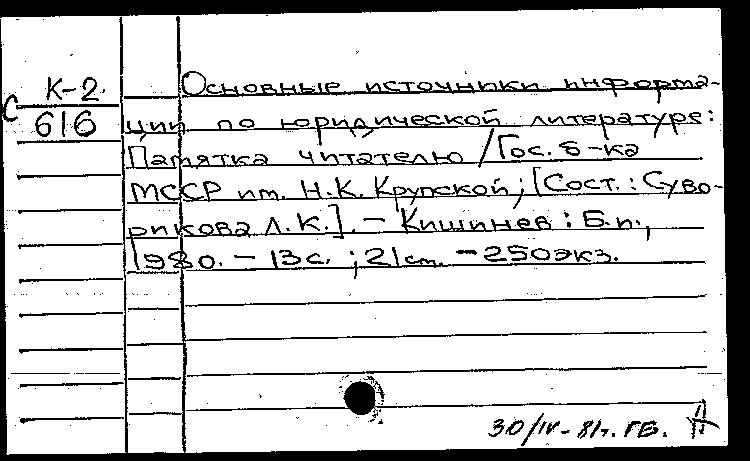 К-2. Основные источники информа-
С 616 ции по юридической литературе:
Памятка читателю / Гос. б-ка
МССР им. Н.К. Крупской; [Сост.: Суво-
рикова Л.К.]. - Кишинев: Б.и.,
1980. - 13с. ; 21см. - 250экз.
30/IV-81г. ГБ.